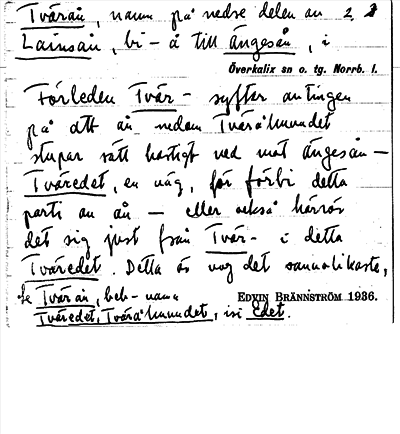 Tväråån, namn på nedre delen av 2
Lainsån, bi-å till Ängesån, i
Överkalix sn o. tg. Norrb. l.
Förleden Tvär- syftar antingen
på att ån nedom Tväråhuvudet
stupar rätt hastigt ned mot Ängesån -
Tväredet, en väg, för förbi detta
parti av ån - eller också härrör
det sig just från Tvär- i detta
Tväredet. Detta är nog det sannolikaste,
Se Tvärån, beb-namn
EDVIN BRÄNNSTRÖM 1936.
Tväredet, Tväråhuvudet, isi Edet.